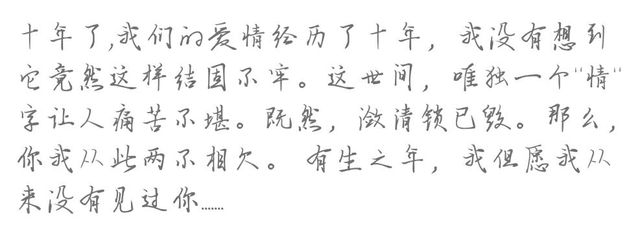 十年了,我们的爱情经历了十年，我没有想到
它竟然这样结固不牢。这世间，唯独一个"情"
字让人痛苦不堪。既然，潋清锁已毁。那么，
你我从此两不相欠。有生之年，我但愿我从
来没有见过你……